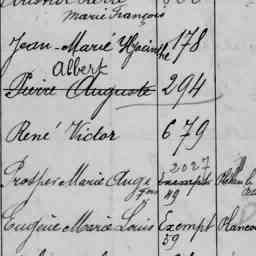 Marie François
Jean-Marie Hyacinthe 178
Albert
Pierre Auguste 294
René Victor 679
2027
Prosper Marie Aug Exempt
49
Eugène Marie Louis Exempt
59